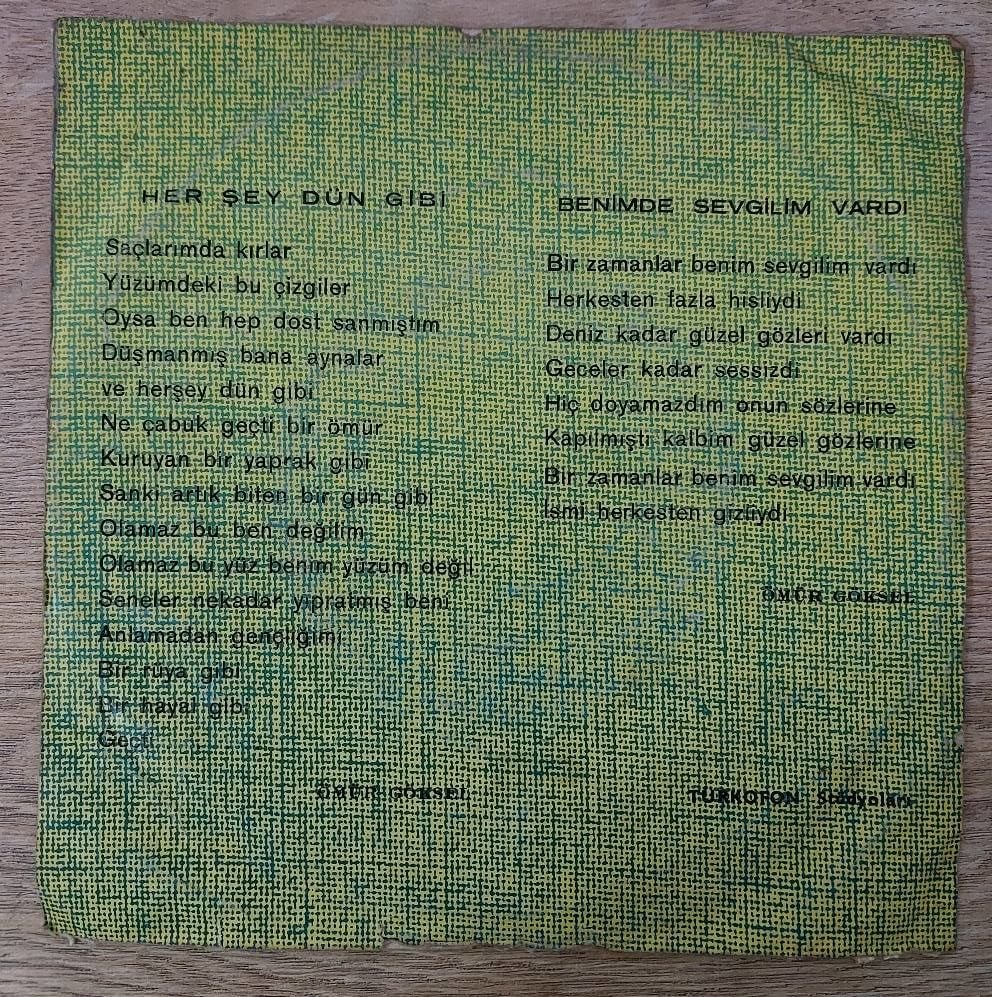 HER ŞEY DÜN GİBİ
Saçlarımda kırlar
Yüzümdeki bu çizgiler
Oysa ben hep dost sanmıştım
Düşmanmış bana aynalar
ve herşey dün gibi
Ne çabuk geçti bir ömür
Kuruyan bir yaprak gibi
Sanki artık biten bir gün gibi
Olamaz bu ben değilim
Olamaz bu yüz benim yüzüm değil
Seneler nekadar yıpratmış beni
Anlamadan gençliğimi
Bir rüya gibi
Bir hayal gibi
Geçti
ÖMÜR GÖKSEL
BENİMDE SEVGİLİM VARDI
Bir zamanlar benim sevgilim vardı
Herkesten fazla hisliydi
Deniz kadar güzel gözleri vardı
Geceler kadar sessizdi
Hiç doyamazdım onun sözlerine
Kapılmıştı kalbim güzel gözlerine
Bir zamanlar benim sevgilim vardı
İsmi herkesten gizliydi
ÖMÜR GÖKSEL
TÜRKOFON Stüdyoları